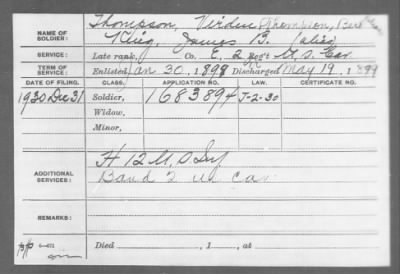 NAME OF SOLDIER: Thompson,
King, James B. (alias)
SERVICE: Late rank, Co. E, 2 Reg't U. S. Cav
TERM OF SERVICE: Enlisted Jan 30, 1898 Discharged May 19, 1899
DATE OF FILING. CLASS. APPLICATION NO. LAW. CERTIFICATE NO.
1930 Dec 31 Soldier, 1683894 J-2-30
Widow,
Minor,
ADDITIONAL SERVICES: H 12 U.S Inf
Band 2 US Cav
REMARKS:
Died , 1 , at